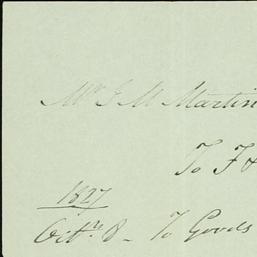 Mr J M Martin
To F &
1827
Octr. 8 - To Goods